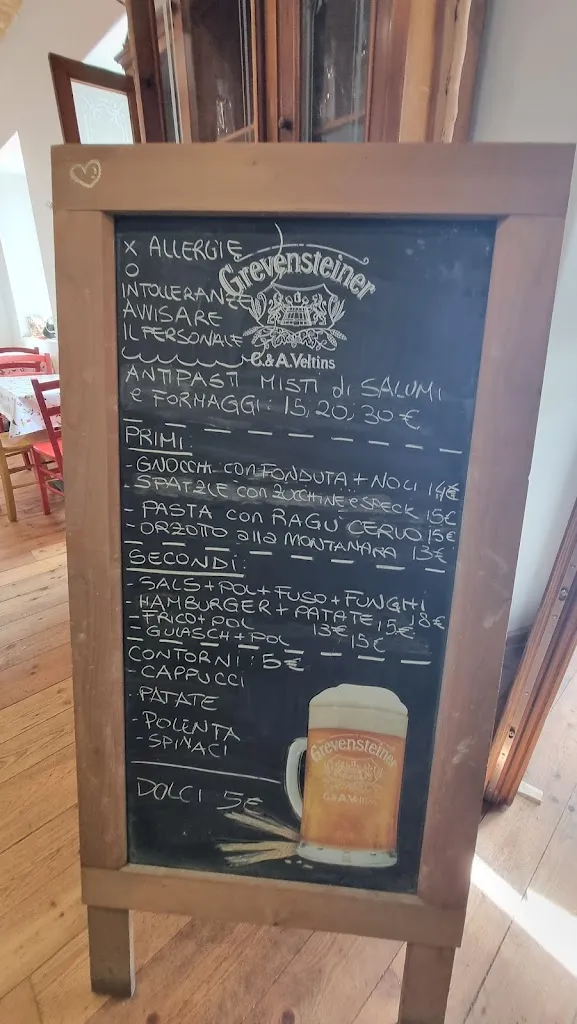 X ALLERGIE
O
INTOLLERANZE
AVVISARE
IL PERSONALE
Grevensteiner
C.&A.Veltins
ANTIPASTI MISTI di SALUMI
e FORMAGGI: 15, 20, 30 €
PRIMI:
- GNOCCHI con FONDUTA + NOCI 14€
- SPATZLE con ZUCCHINE e SPECK 15€
- PASTA con RAGU' CERVO 15€
- ORZOTTO alla MONTANARA 13€
SECONDI:
- SALS + POL + FUSO + FUNGHI 18€
- HAMBURGER + PATATE 15€
- FRICO + POL 13€
- GULASCH + POL 15€
CONTORNI: 5€
- CAPPUCCI
- PATATE
- POLENTA
- SPINACI
DOLCI 5€
Grevensteiner
C.&A.Veltins